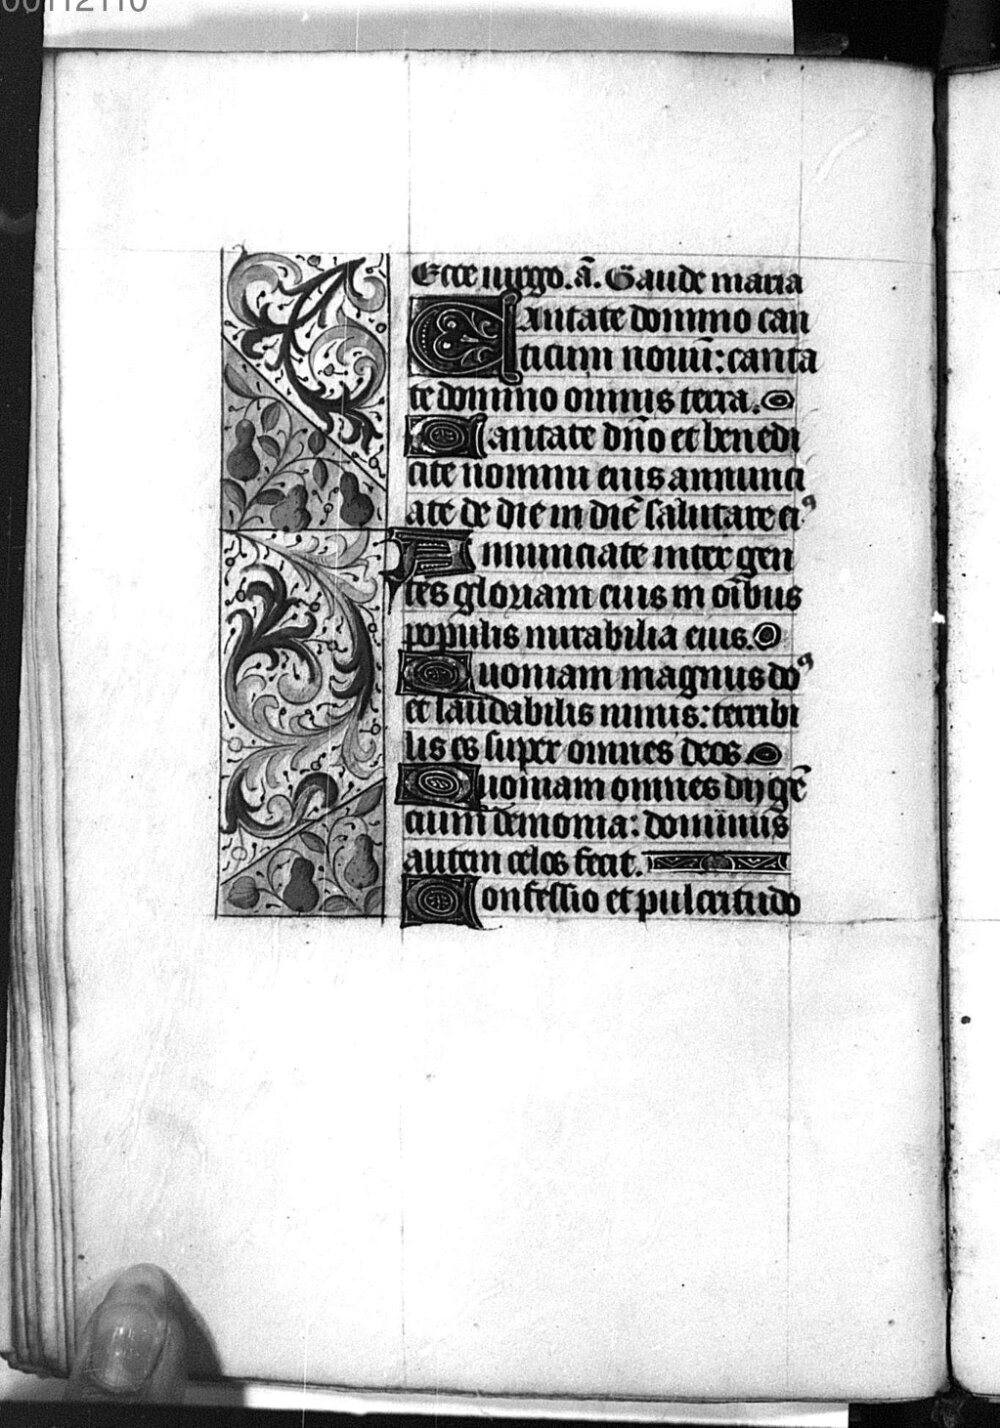 00112110
Ecce uirgo. ā. Gaude maria
Cantate domino can
ticum nouū: canta
te domino omnis terra.
Cantate dño et benedi
cite nomini eius annunci
ate de die in diē salutare eiꝰ
Annunciate inter gen
tes gloriam eius in oībus
populis mirabilia eius.
Quoniam magnus doꝰ
et laudabilis nimis: terribi
lis es super omnes deos
Quoniam omnes dij gē
cium demonia: dominus
autem celos fecit.
Confessio et pulcritudo